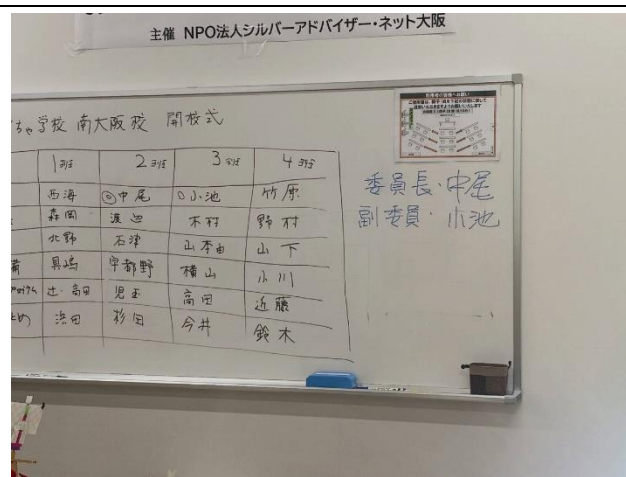 主催 NPO法人シルバーアドバイザー・ネット大阪
ちゃ学校 南大阪校 開校式
1班 2班 3班 4班
西海 ◎中尾 ○小池 竹原
森岡 渡辺 木村 野村
北野 石津 山本由 山下
備 貝嶋 宇都野 横山 小川
辻・高田 児玉 高田 近藤
とめ 浜田 杉田 今井 鈴木
利用者の皆様へお願い
委員長・中尾
副委員・小池